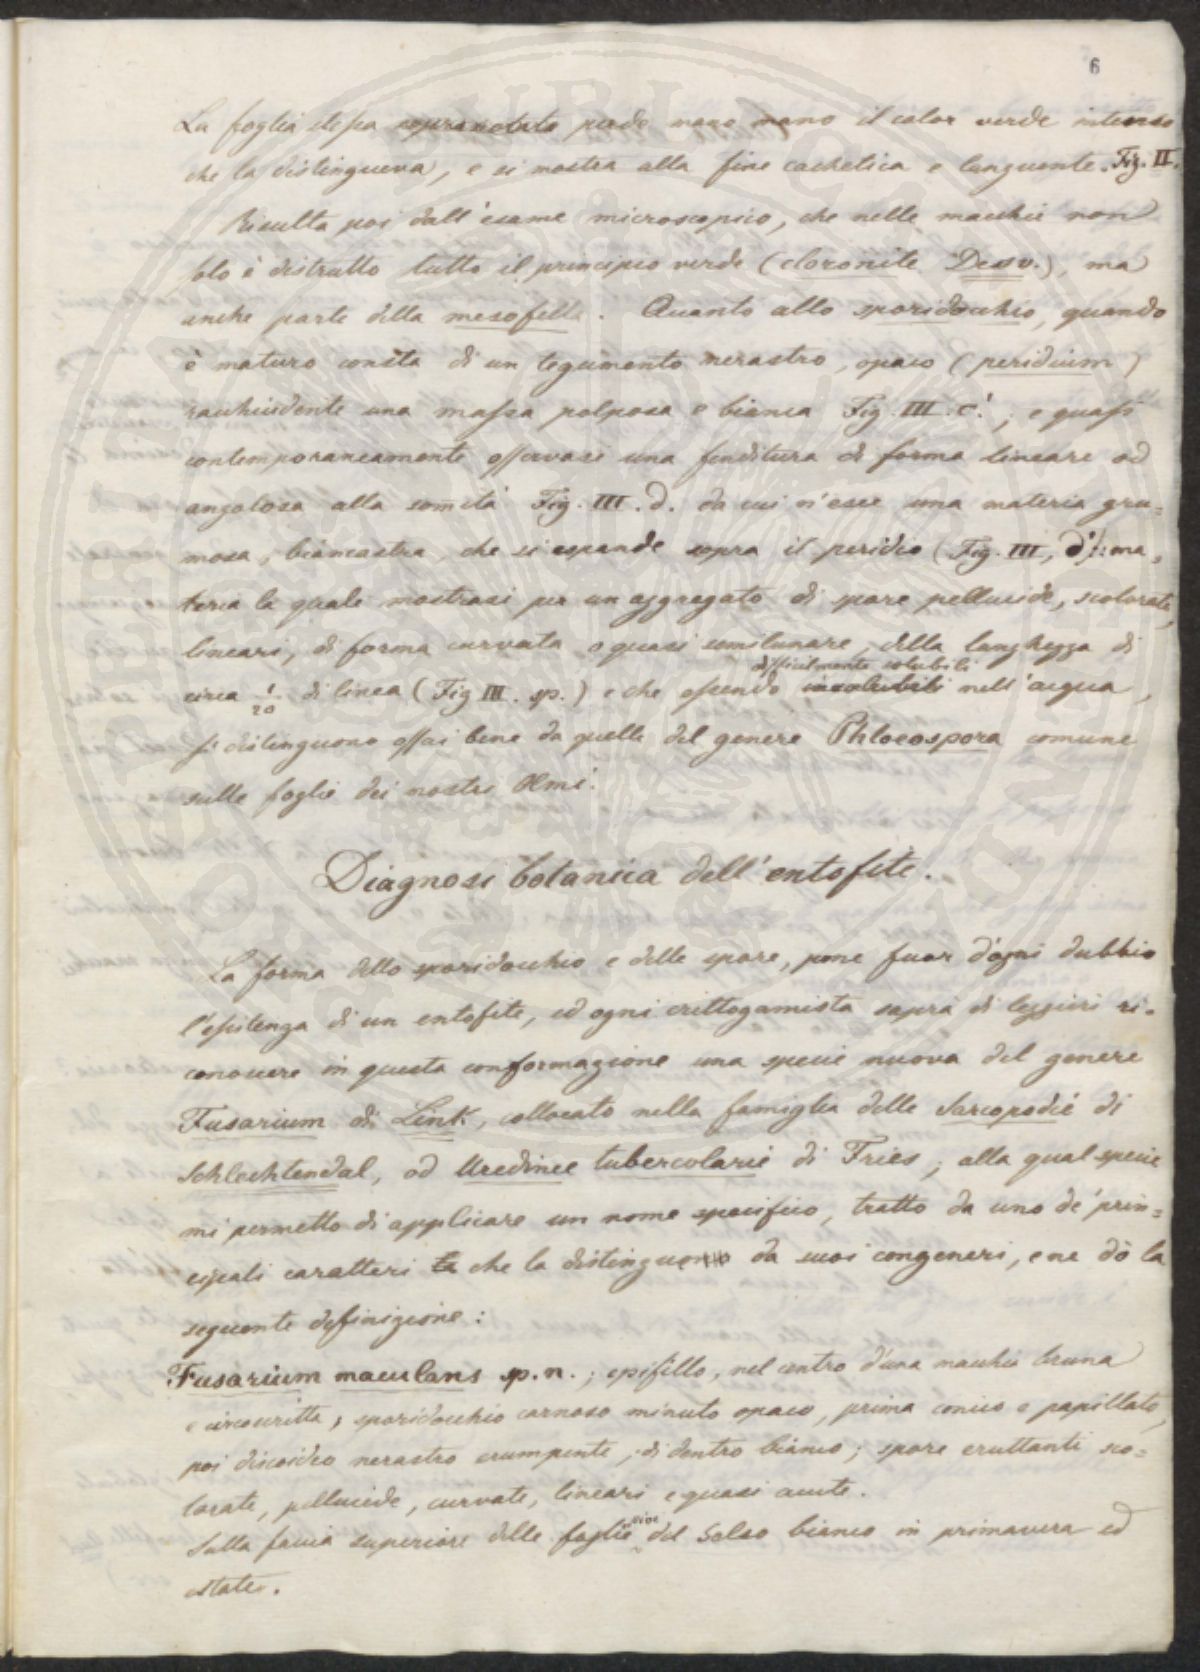 6
La foglia stessa soprannotata perde mano mano il color verde intenso
che la distingueva, e si mostra alla fine cachetica e languente. Fig. II.
Risulta poi dall'esame microscopico, che nelle macchie non
solo è distrutto tutto il principio verde (cloronite Desv.), ma
anche parte della mesofilla. Quanto allo sporidocchio, quando
è maturo consta di un tegumento nerastro, opaco (peridium)
racchiudente una massa polposa e bianca Fig. III. c'; e quasi
contemporaneamente osservasi una fenditura di forma lineare od
angolosa alla somità Fig. III. d. da cui n'esce una materia gru=
mosa, biancastra, che si espande sopra il peridio (Fig. III, d'): ma=
teria la quale mostrasi per un aggregato di spore pellucide, scolorate,
lineari, di forma curvata o quasi semilunare, della lunghezza di
difficilmente solubili
circa 1/20 di linea (Fig III. sp.) e che essendo insolubili nell'acqua,
si distinguono assai bene da quelle del genere Phloeospora comune
sulle foglie dei nostri Olmi.
Diagnosi botanica dell'entofite.
La forma dello sporidocchio e delle spore, pone fuor d'ogni dubbio
l'esistenza di un entofite, ed ogni crittogamista saprà di leggieri ri=
conoscere in questa conformazione una specie nuova del genere
Fusarium di Link, collocato nella famiglia delle Sarcopodié di
Schlechtendal, od Uredinee tubercolarié di Fries; alla qual specie
mi permetto di applicare un nome specifico, tratto da uno de' prin=
cipali caratteri la che la distinguono da suoi congeneri, e ne dò la
seguente definizione:
Fusarium maculans sp. n.; epifillo, nel centro d'una macchia bruna
e circoscritta, sporidocchio carnoso minuto opaco, prima conico e papillato,
poi discoideo nerastro erumpente, di dentro bianco; spore eruttanti sco=
lorate, pellucide, curvate, lineari e quasi acute.
vive
Sulla faccia superiore delle foglie del Gelso bianco in primavera ed
estate.